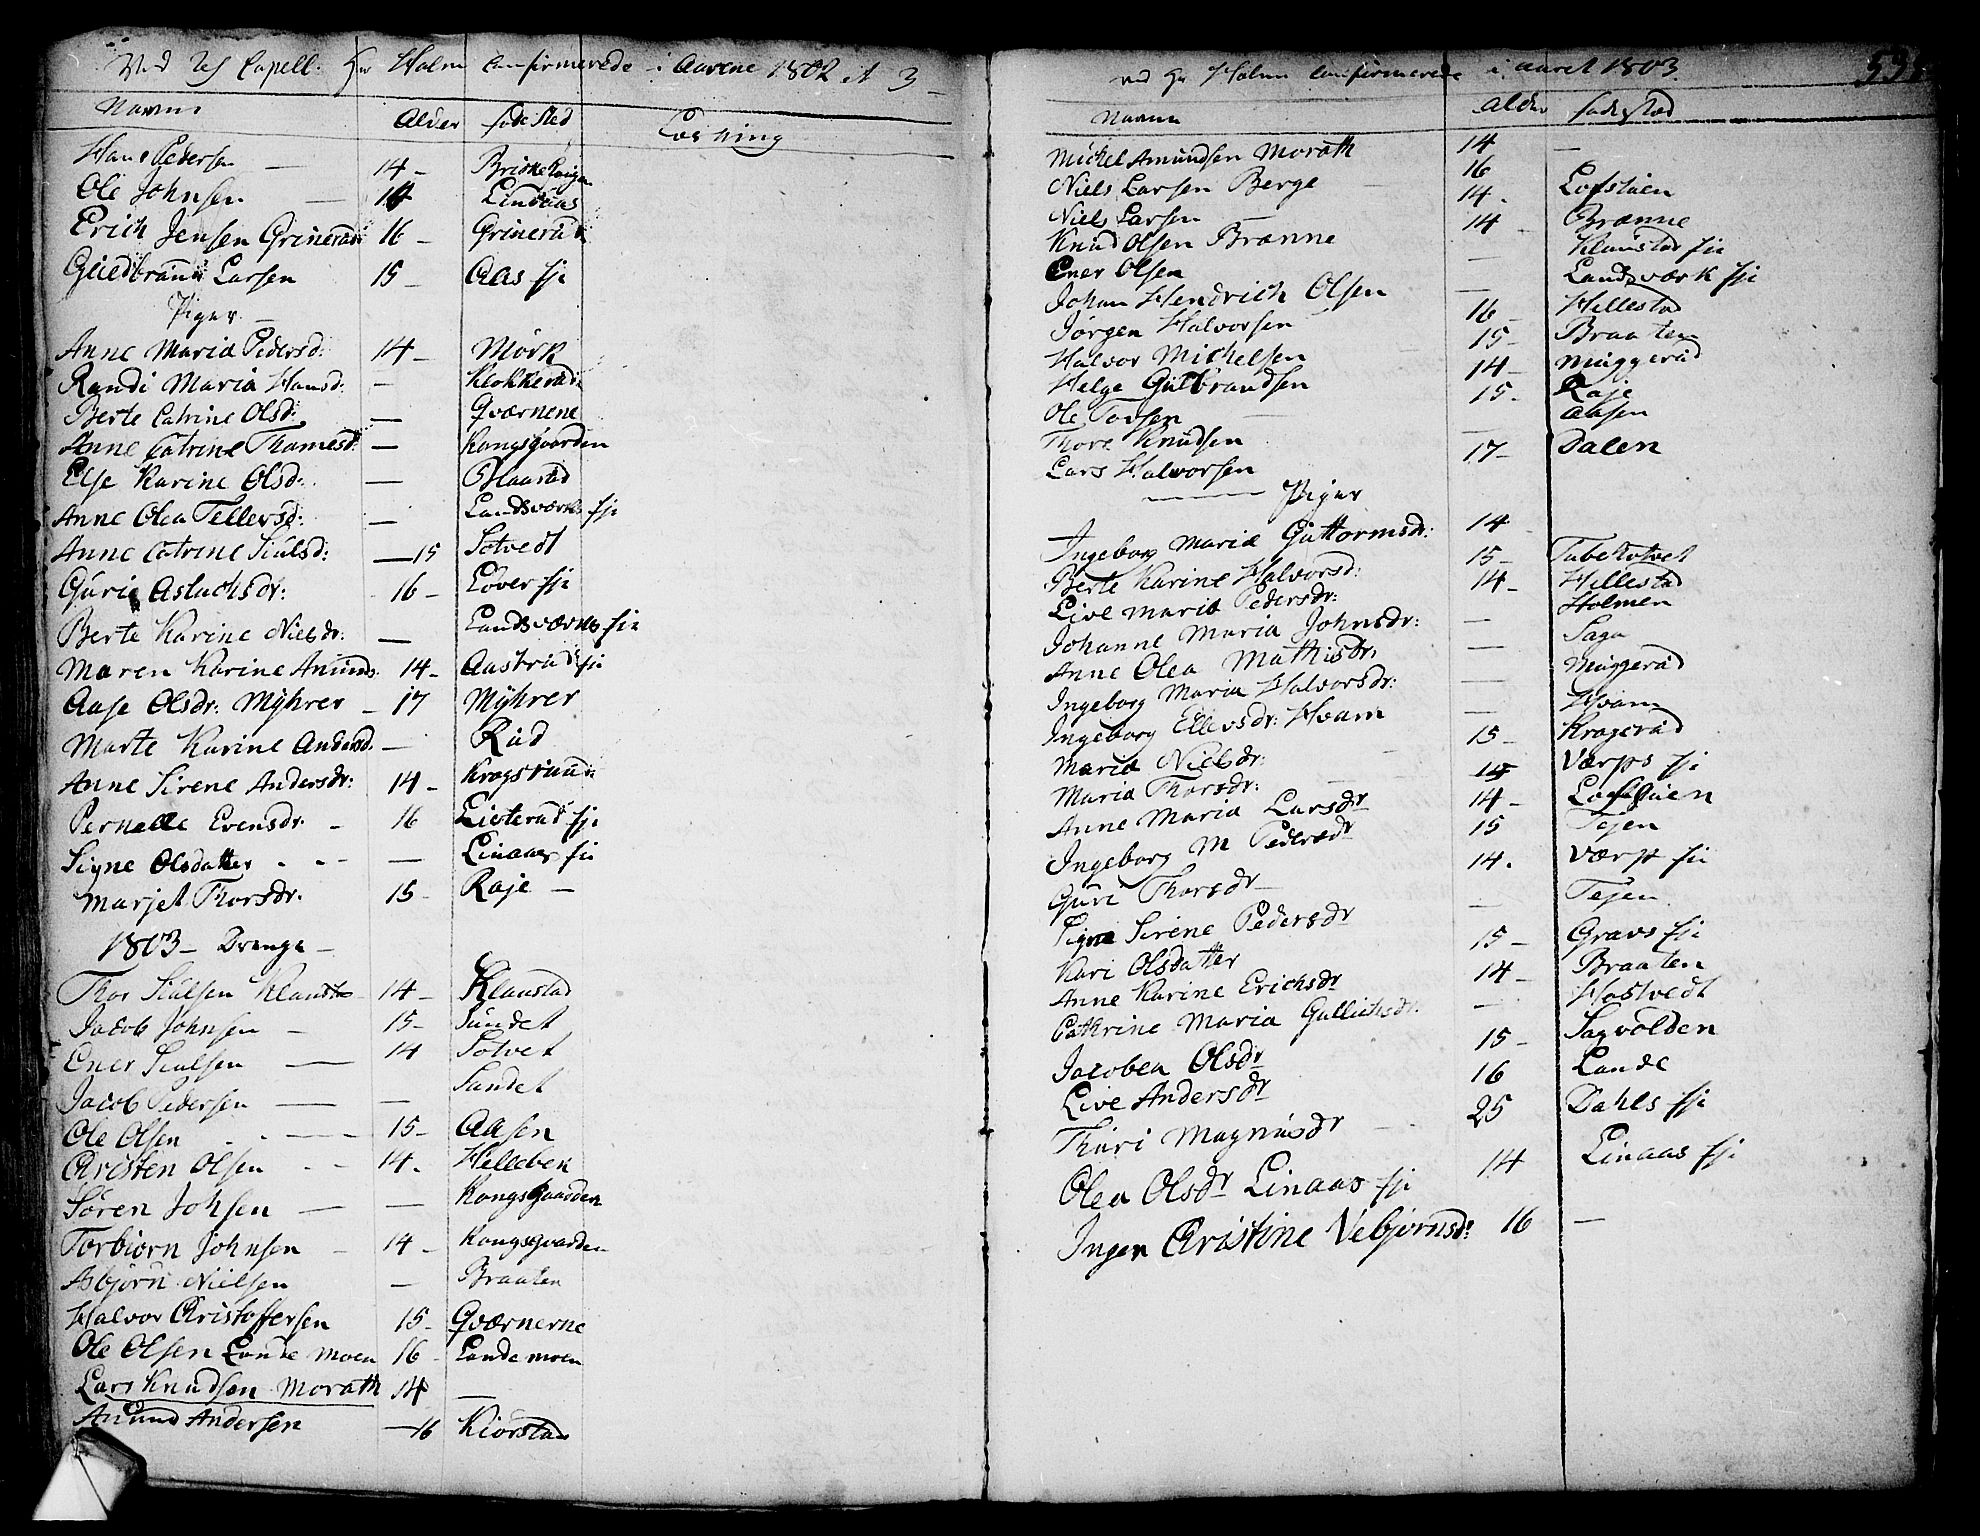 Ved Capell: Hr Holm Confirmerede i Aarene 1802 et 3
Navne Alder føde sted Løsning
Hans Pedersen — 14 –
Ole Johnsen — 14 Lindaas
Erich Jensen Grinerud 16 – Grinerud
Guldbrand Larsen 15 – Aas fje
Piger –
Anne Maria Pedersd: 14 – Mørk
Randi Maria Hansd: — Klokkerud
Berte Catrine Olsd: — Qværnene
Anne Catrine Thomesd: — Kongsgaarden
Else Karine Olsd: — Blaarud
Anne Olea Tellevsd: — Landsværks fje
Anne Catrine Siulsd: — 15 Sotvedt
Gurie Aslachsdr: 16 – Løver fje
Berte Karine Nielsdr: — Landsværks fje
Maren Karine Amunds: 14 – Aasterud fje
Aase Olsdr: Mÿhrer – 17 Mÿhrer
Marte Karine Andersd. — Rud
Anne Sirene Andersdr: 14 – Kragsrund
Pernelle Evensdr. – 16 Listerud fje
Signe Olsdatter — Linaas fje
Marjet Thorsdr. 15 – Raje —
1803 – Drenge –
Thor Siulsen Klaustad 14 – Klaustad
Jacob Johnsen – 15 – Sundet
Ener Siulsen — 14 Sotvet
Jacob Pedersen — — Sundet
Ole Olsen — 15 – Aasen
Christen Olsen - - 14. Hellebek
Søren Johsen — — Kongsgaarden
Torbiørn Johnsen – 14 – Kongsgaarden
Asbjørn Nielsen — Braaten
Halvor Christoffersen 15 – Qværnerne
Ole Olsen Lande moen 16 – Lande moen
Lars Knudsen Morath 14 —
Amund Andersen — 16 Kiørstad
ved Hr Holm Confirmerede i aaret 1803
Navne Alder føde stad
Michel Amundsen Morath 14 —
Niels Larsen Berge 16
Niels Larsen 14. Lofstuen
Knud Olsen Brænne 14 – Brænne
Ener Olsen — Klaustad fje
Johan Hendrich Olsen — Landsværk fje
Jørgen Halvorsen 16 – Hillestad
Halvor Michelsen 15 – Braaten
Helge Gulbrandsen 14 – Muggerud
Ole Tovsen — 15. Raje
Thore Knudsen — Aasen
Lars Halvorsen 17 – Dalen
— Piger
Ingeborg Maria Guttormsdr: 14
Berte Karine Halvorsd: 15 –
Live Maria Pedersdr: 14 – Hillestad
Johanne Maria Johnsdr: — Holmen
Anne Olea Mathisdr — Saga
Ingeborg Maria Halvorsdr: — Muggerud
Ingeborg Ellevsdr: Hvam — Hvam
Maria Nielsdr: 15 – Kragerud
Maria Thorsdr: 14 Værps fje
Anne Maria Larsdr 14 – Lofstuen
Ingeborg M Pedersdr 15 Tejen
Guri Thorsdr 14. Værp fje
Signe Sirene Pedersdr — Tejen
Kari Olsdatter 15 – Gravs fje
Anne Karine Erichsdr 14 – Braaten
Cathrine Maria Gullichsdr. — Hostvedt
Jacobea Olsdr 15 – Sagvolden
Live Andersdr 16 Lande
Thuri Magnusdr 25 Dahls fje
Olea Olsdr Linaas fje 14 Linaas fje
Inger Christine Vebjørnsd: 16 —